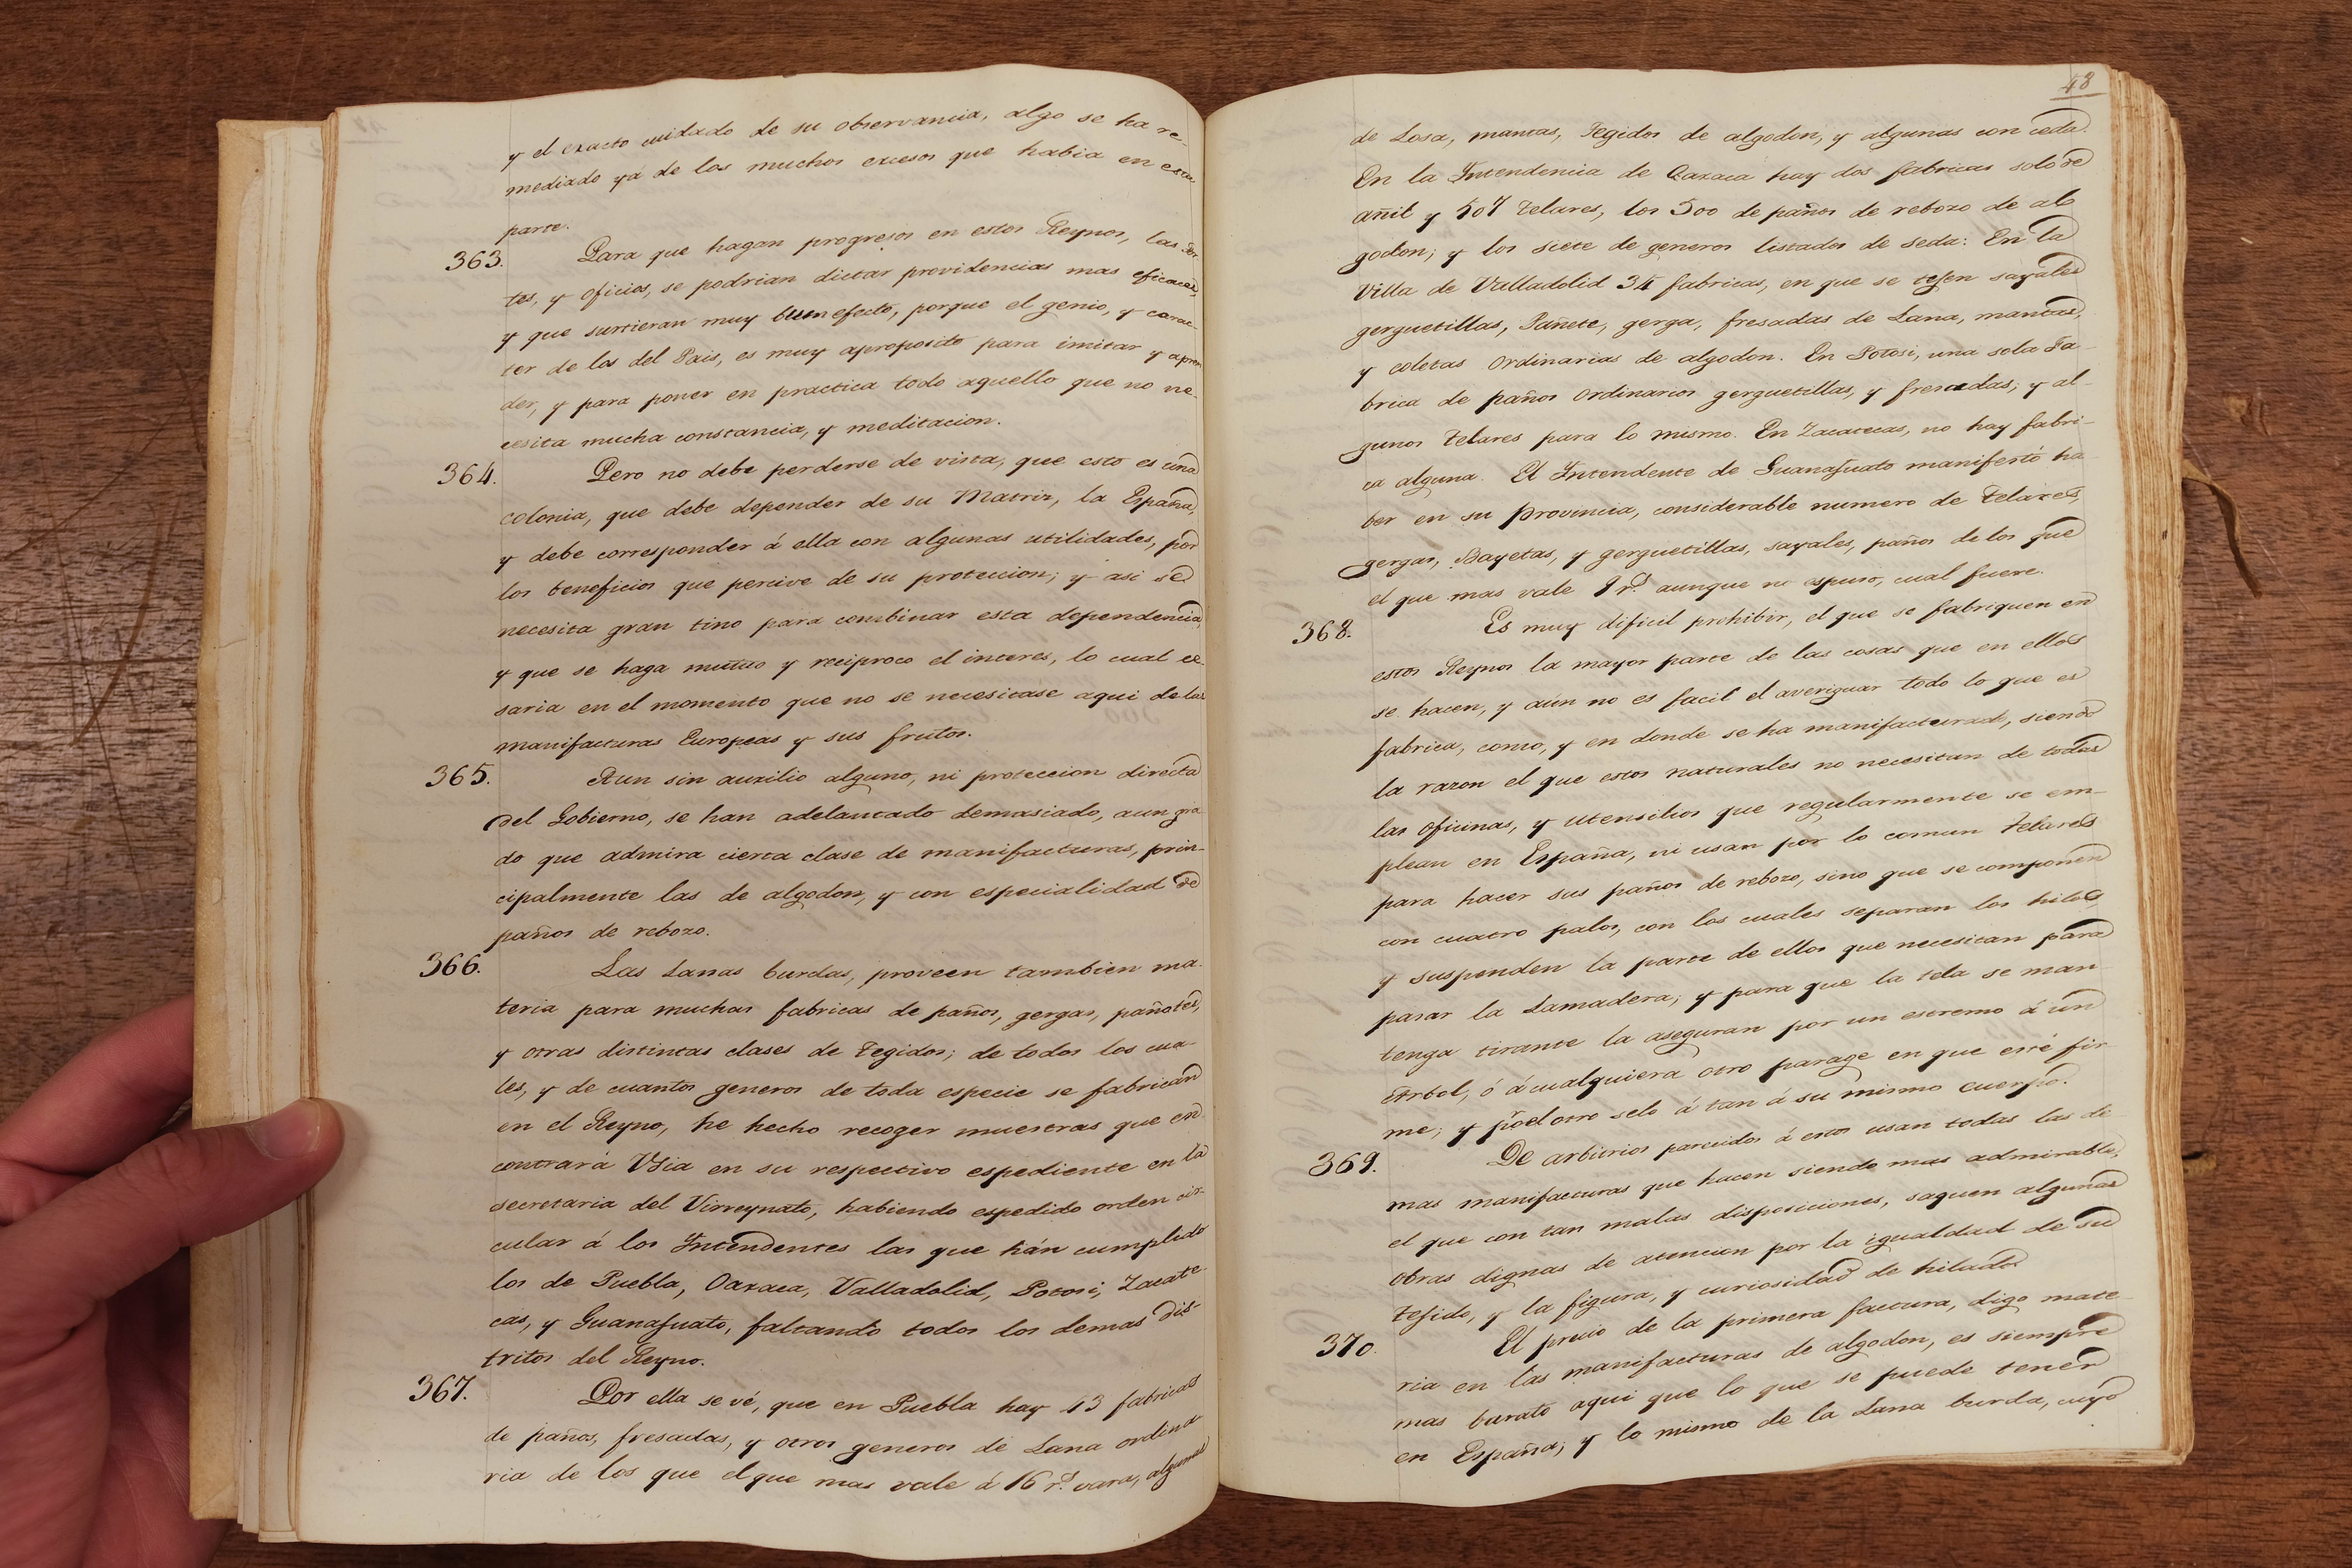 y el exacto cuidado de su observancia, algo se ha re-
mediado yá de los muchos excesos que habia en esta
parte.
363. Para que hagan progresos en estos Reynos, las Ar-
tes, y oficios, se podrian dictar providencias mas eficaces,
y que surtieran muy buen efecto, porque el genio, y carac-
ter de los del Pais, es muy aproposito para imitar y apren-
der, y para poner en practica todo aquello que no ne-
cesita mucha constancia, y meditacion.
364. Pero no debe perderse de vista, que esto es una
colonia, que debe depender de su Matriz, la España,
y debe corresponder á ella con algunas utilidades, por
los beneficios que percive de su proteccion; y asi se
necesita gran tino para combinar esta dependencia,
y que se haga mutuo y reciproco el interes, lo cual ce-
saria en el momento que no se necesitase aqui de las
manifacturas Europeas y sus frutos.
365. Aun sin auxilio alguno, ni proteccion directa
del Gobierno, se han adelantado demasiado, aun gra
do que admira cierta clase de manifacturas, prin-
cipalmente las de algodon, y con especialidad de
paños de rebozo.
366. Las Lanas burdas, proveen tambien ma-
teria para muchas fabricas de paños, gergas, pañotes,
y otras distintas clases de Tegidos; de todos los cua-
les, y de cuantos generos de toda especie se fabrican
en el Reyno, he hecho recoger muestras que en
contrará VSia en su respectivo espediente en la
secretaria del Virreynato, habiendo espedido orden cir-
cular á los Intendentes las que hán cumplido
los de Puebla, Oaxaca, Valladolid, Potosi, Zacate
cas, y Guanajuato, faltando todos los demas dis-
tritos del Reyno.
367. Por ella se vé, que en Puebla hay 43 fabricas
de paños, fresadas, y otros generos de Lana ordina
ria de los que el que mas vale á 16 r.s vara, algunas
48
de Losa, mantas, Tegidos de algodon, y algunas con ceda.
En la Intendencia de Oaxaca hay dos fabricas solo de
añil y 507 Telares, los 500 de paños de rebozo de al
godon; y los siete de generos listados de seda: En la
Villa de Valladolid 34 fabricas, en que se tejen sayales
gerguetillas, Pañete, gerga, fresadas de Lana, mantas,
y coletas ordinarias de algodon. En Potosi, una sola Fa-
brica de paños ordinarios gerguetillas, y frezadas; y al-
gunos Telares para lo mismo. En Zacatecas, no hay fabri-
ca alguna. El Intendente de Guanajuato manifestó ha
ber en su provincia, considerable numero de Telares,
gergas, Bayetas, y gerguetillas, sayales, paños de los que
el que mas vale 9 r.s aunque no espuso, cual fuere.
368. Es muy dificil prohibir, el que se fabriquen en
estos Reynos la mayor parte de las cosas que en ellos
se hacen, y aún no es facil el averiguar todo lo que es
fabrica, como, y en donde se ha manifacturado, siendo
la razon el que estos naturales no necesitan de todas
las oficinas, y utensilios que regularmente se em-
plean en España, ni usan por lo comun Telares
para hacer sus paños de rebozo, sino que se componen
con cuatro palos, con los cuales separan los hilos,
y suspenden la parte de ellos que necesitan para
pasar la Lamadera; y para que la tela se man
tenga tirante la aseguran por un estremo á un
Arbol, ó á cualquiera otro parage en que esté fir
me; y por el otro selo á tan á su mismo cuerpo.
369. De arbitrios parecidos á estos usan todas las de
mas manifacturas que hacen siendo mas admirable,
el que con tan malas disposiciones, saquen algunas
obras dignas de atencion por la igualdad de su
tejido, y la figura, y curiosidad de hilados
370. El precio de la primera factura, digo mate
ria en las manifacturas de algodon, es siempre
mas barato aqui que lo que se puede tener
en España; y lo mismo de la Lana burda, cuyo